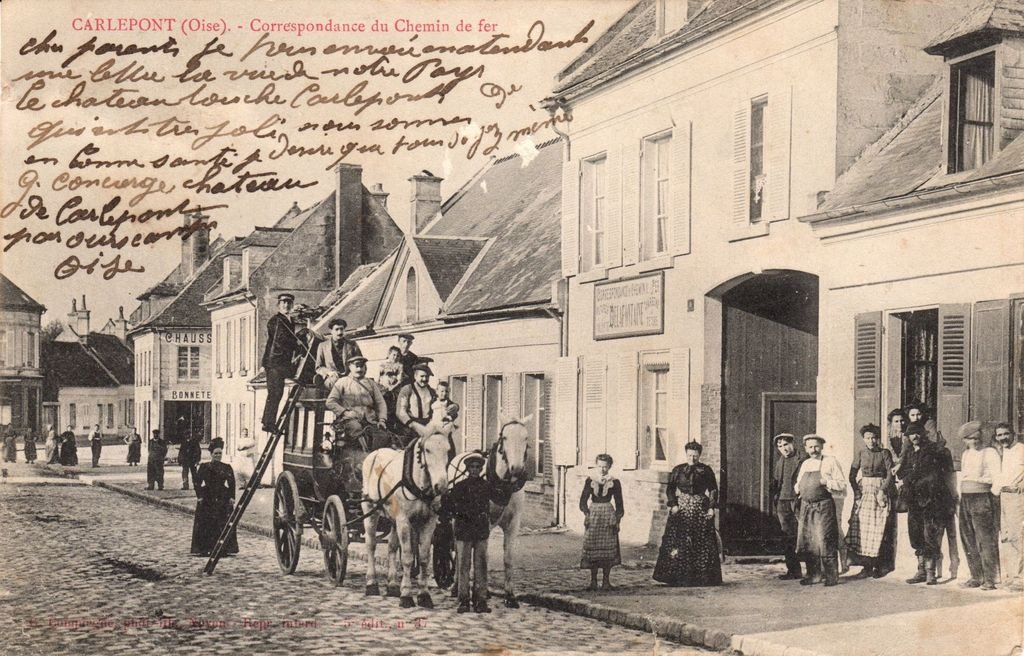 CARLEPONT (Oise). - Correspondance du Chemin de fer
cher parents je vous envoie en atendant
une lettre la vue de notre Pays
le chateau touche Carlepont
qui est tres joli nous sommes
en bonne santé je desire que vous soyez de même
g. concierge chateau
de Carlepont
par ourscamps
Oise
CHAUSS
BONNETE
CORRESPONDANCE CHEMIN DE FER
DELAFONTAINE
phot. Noyon - Repr. interd. - 5e édit., n° 37